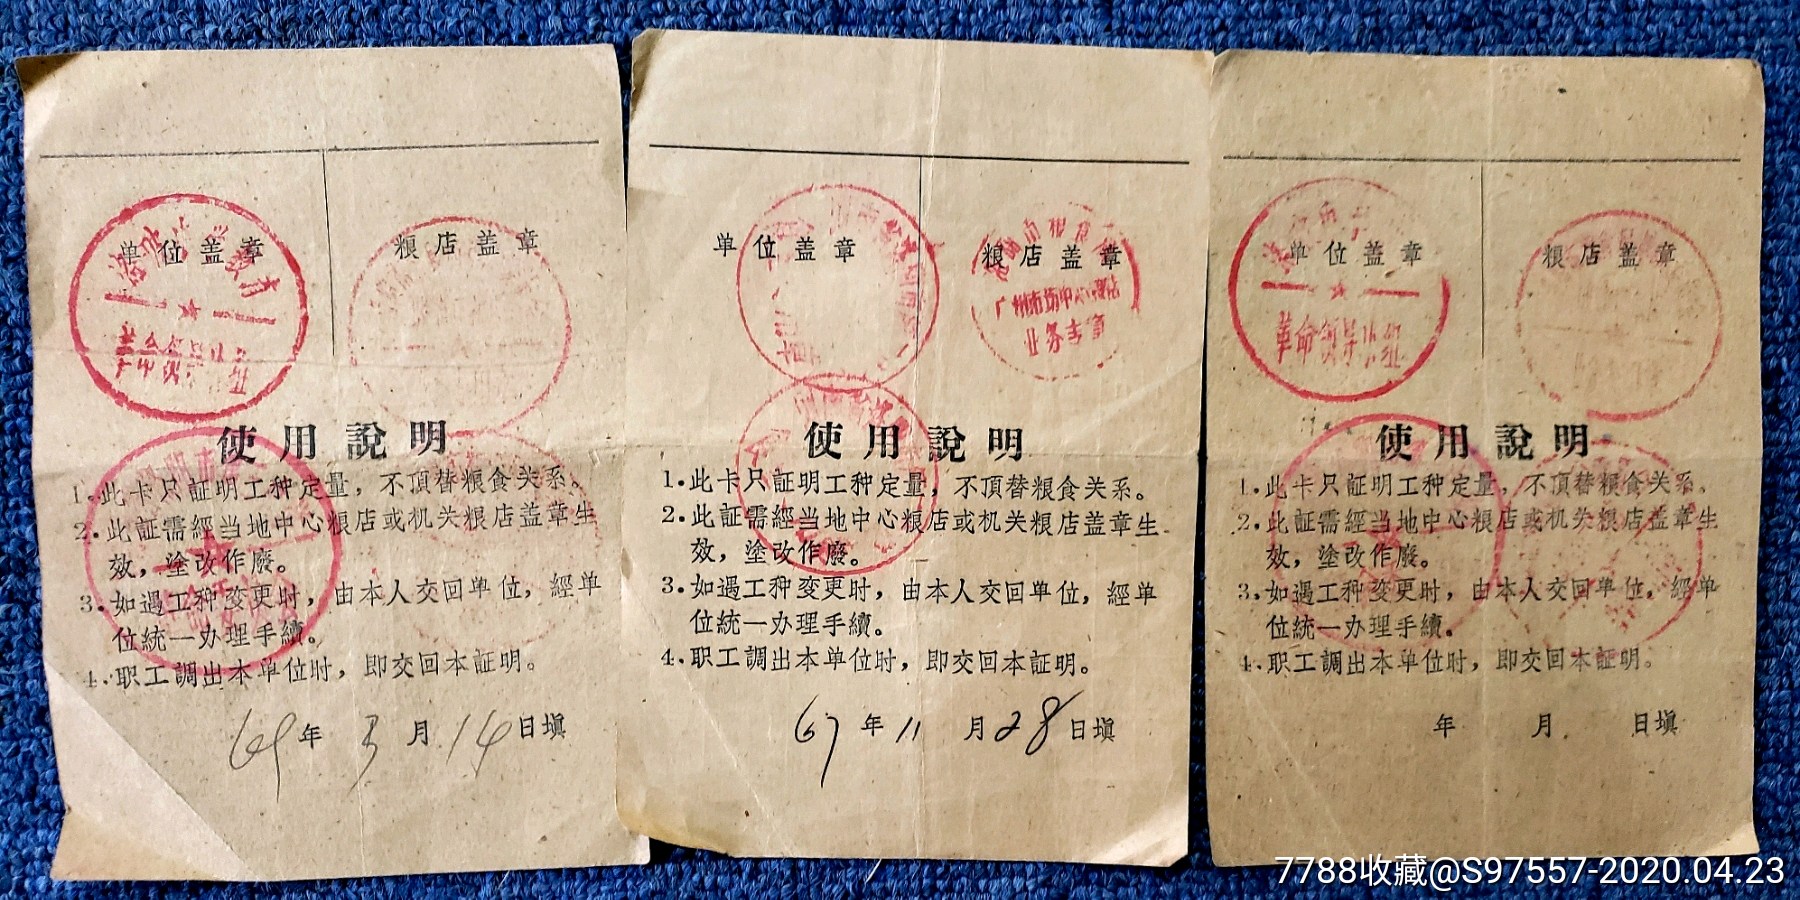 单位盖章 粮店盖章
革命领导小组
使用說明
1.此卡只証明工种定量，不頂替粮食关系。
2.此証需經当地中心粮店或机关粮店盖章生
效，塗改作廢。
3.如遇工种变更时，由本人交回单位，經单
位統一办理手續。
4.职工調出本单位时，即交回本証明。
69年3月14日填
单位盖章 粮店盖章
业务专章
使用說明
1.此卡只証明工种定量，不頂替粮食关系。
2.此証需經当地中心粮店或机关粮店盖章生
效，塗改作廢。
3.如遇工种变更时，由本人交回单位，經单
位統一办理手續。
4.职工調出本单位时，即交回本証明。
67年11月28日填
单位盖章 粮店盖章
革命领导小组
使用說明
1.此卡只証明工种定量，不頂替粮食关系。
2.此証需經当地中心粮店或机关粮店盖章生
效，塗改作廢。
3.如遇工种变更时，由本人交回单位，經单
位統一办理手續。
4.职工調出本单位时，即交回本証明。
年 月 日填
7788收藏@S97557-2020.04.23